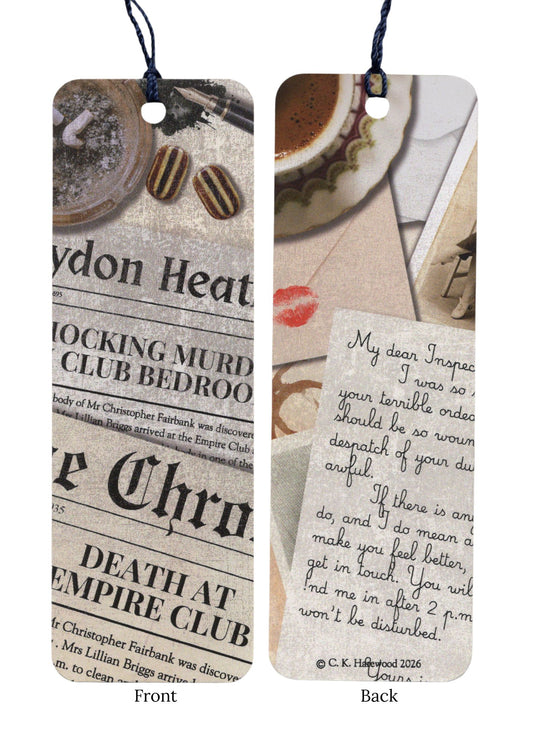 ydon Heat
695
HOCKING MURD
Y CLUB BEDROO
body of Mr Christopher Fairbank was discovere
Mrs Lillian Briggs arrived at the Empire Club
in one of the
e Chro
935
DEATH AT
EMPIRE CLUB
Mr Christopher Fairbank was discove
. Mrs Lillian Briggs arrived
.m. to clean
Front
My dear Inspec
I was so
your terrible orde
should be so woun
despatch of your du
awful.
If there is any
do, and I do mean a
make you feel better,
get in touch. You wil
nd me in after 2 p.m
won't be disturbed.
Yours
© C. K. Harewood 2026
Back